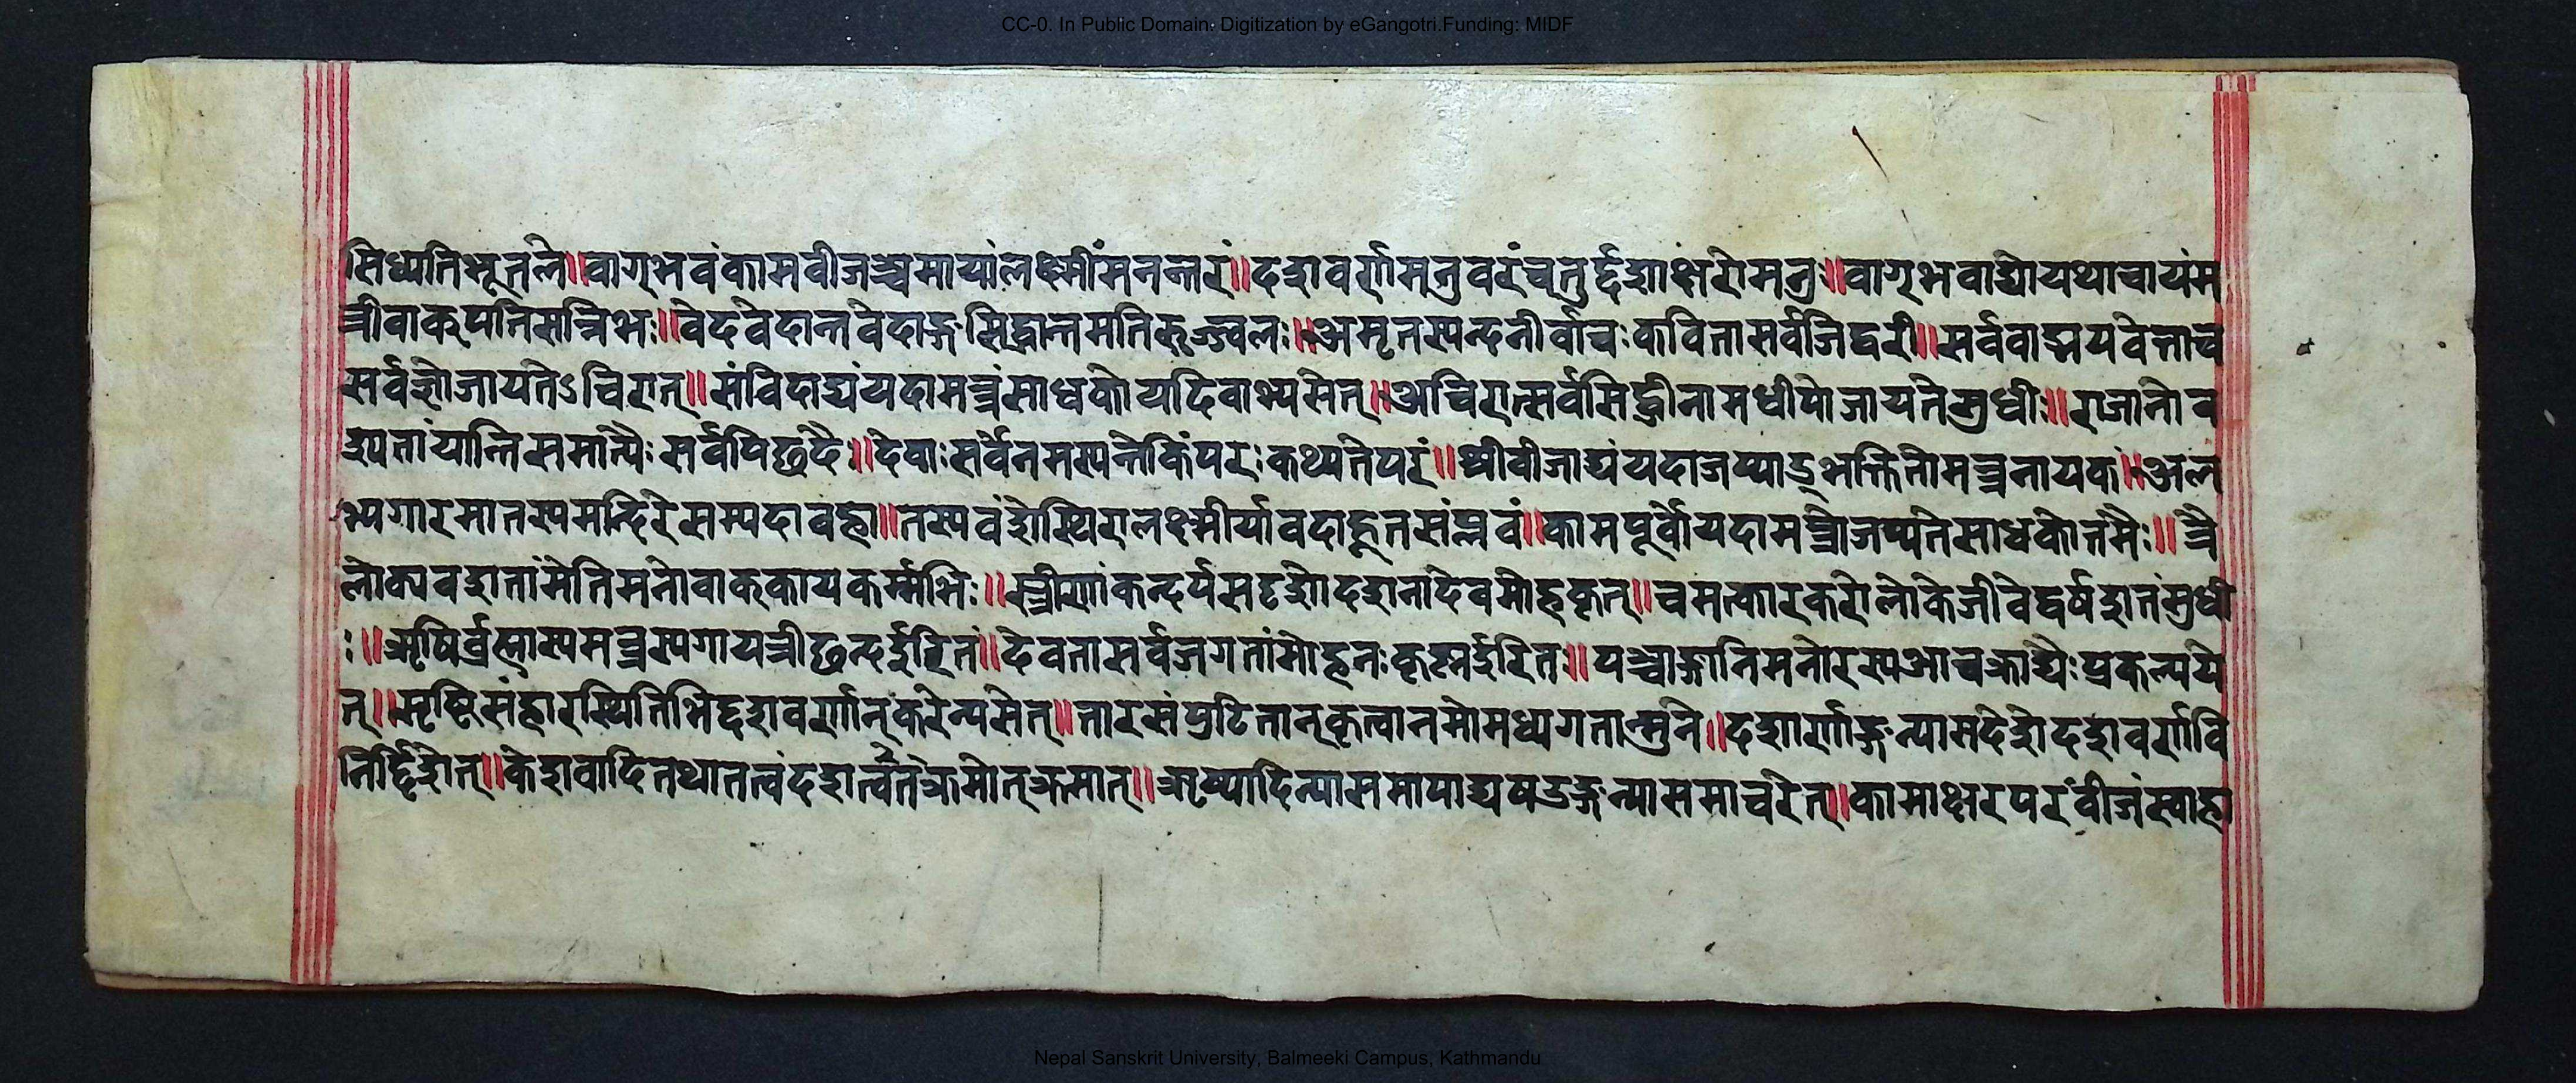 CC-0. In Public Domain. Digitization by eGangotri.Funding: MIDF
सिध्यतिभूतले॥वाग्भवंकामवीजञ्चमायांलक्ष्मींमनन्तरं॥दशवर्णामनुवरंचतुर्द्दशाक्षरोमनुः॥वाग्भवाद्योयथाचायंम
न्त्रीवाक्पतिसन्निभः॥वेदवेदान्तवेदाङ्गसिद्धान्तमतिरुज्ज्वलः॥अमृतस्यन्दनीर्वाचःकवितासर्वजिद्वरी॥सर्ववाङ्मयवेत्ताच
सर्वज्ञोजायतेऽचिरात्॥संविदाद्यंयदामन्त्रंसाधकोयदिवाभ्यसेत्॥अचिरात्सर्वसिद्धीनामधीपोजायतेसुधीः॥राजानोव
श्यतांयान्तिसमात्यैःसर्वपिछदैः॥देवाःसर्वेनमस्यन्तेकिंपरःकथ्यतेपरं॥श्रीवीजाद्यंयदाजप्याद्भक्तितोमन्त्रनायकं॥अल
भ्यगारमातस्यमन्दिरेसम्पदावहा॥तस्यवंशेस्थिरालक्ष्मीर्यावदाहूतसंप्लवं॥कामपूर्वोयदामन्त्रोजप्यतेसाधकोत्तमैः॥त्रै
लोक्यवशतांमेतिमनोवाक्कायकर्म्मभिः॥स्त्रीणांकन्दर्पसदृशोदशनादेवमोहकृत्॥चमत्कारकरोलोकेजीवेद्वर्षशतंसुधी
ः॥ऋषिर्व्रह्मास्यमन्त्रस्यगायत्रीछन्दईरितं॥देवतासर्वजगतांमोहनःकृष्णईरितः॥पञ्चाङ्गानिमनोरस्यआचक्राद्यैःप्रकल्पये
त्॥सृष्टिसंहारस्थितिभिद्दशवर्णान्करेन्यसेत्॥तारसंपुटितान्कृत्वानमोमध्यगतान्मुने॥दशार्णाङ्गन्यासदेशेदशवर्णावि
निर्द्दिशेत्॥केशवादितथातत्वंदशतत्वंक्रमोत्क्रमात्॥ऋष्यादिन्यासमापाद्यषडङ्गन्यासमाचरेत्॥कामाक्षरपरंवीजंस्वाहा
Nepal Sanskrit University, Balmeeki Campus, Kathmandu